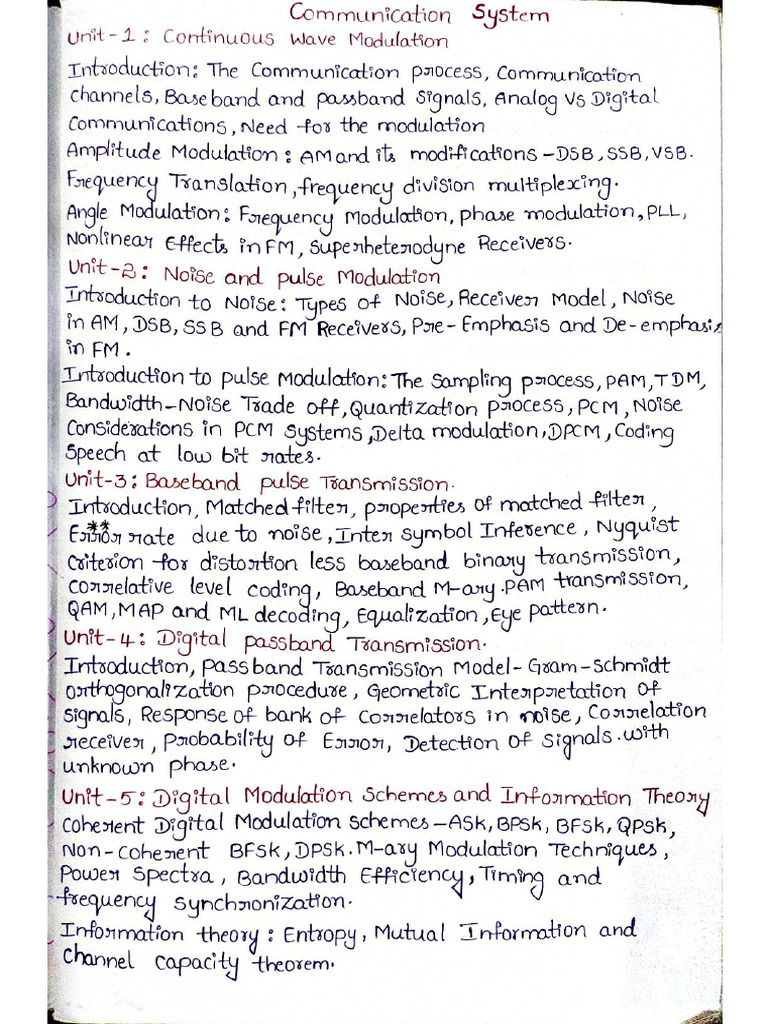 Communication System
Unit-1: Continuous Wave Modulation
Introduction: The Communication process, Communication
channels, Baseband and passband Signals, Analog Vs Digital
Communications, Need for the modulation
Amplitude Modulation: AM and its modifications - DSB, SSB, VSB.
Frequency Translation, frequency division multiplexing.
Angle Modulation: Frequency Modulation, phase modulation, PLL,
Nonlinear Effects in FM, Superheterodyne Receivers.
Unit-2: Noise and pulse Modulation
Introduction to Noise: Types of Noise, Receiver Model, Noise
in AM, DSB, SSB and FM Receivers, Pre-Emphasis and De-emphasis
in FM.
Introduction to pulse Modulation: The Sampling process, PAM, TDM,
Bandwidth-Noise Trade off, Quantization process, PCM, Noise
Considerations in PCM Systems, Delta modulation, DPCM, Coding
Speech at low bit rates.
Unit-3: Baseband pulse Transmission.
Introduction, Matched filter, properties of matched filter,
Error rate due to noise, Inter Symbol Inference, Nyquist
Criterion for distortion less baseband binary transmission,
Correlative level coding, Baseband M-ary.PAM transmission,
QAM, MAP and ML decoding, Equalization, Eye pattern.
Unit-4: Digital passband Transmission.
Introduction, Passband Transmission Model-Gram-Schmidt
Orthogonalization procedure, Geometric Interpretation of
signals, Response of bank of Correlators in noise, Correlation
receiver, Probability of Error, Detection of Signals.with
unknown phase.
Unit-5: Digital Modulation Schemes and Information Theory
Coherent Digital Modulation schemes - ASK, BPSK, BFSK, QPSK,
Non-Coherent BFSK, DPSK. M-ary Modulation Techniques,
Power Spectra, Bandwidth Efficiency, Timing and
frequency synchronization.
Information theory: Entropy, Mutual Information and
Channel capacity theorem.